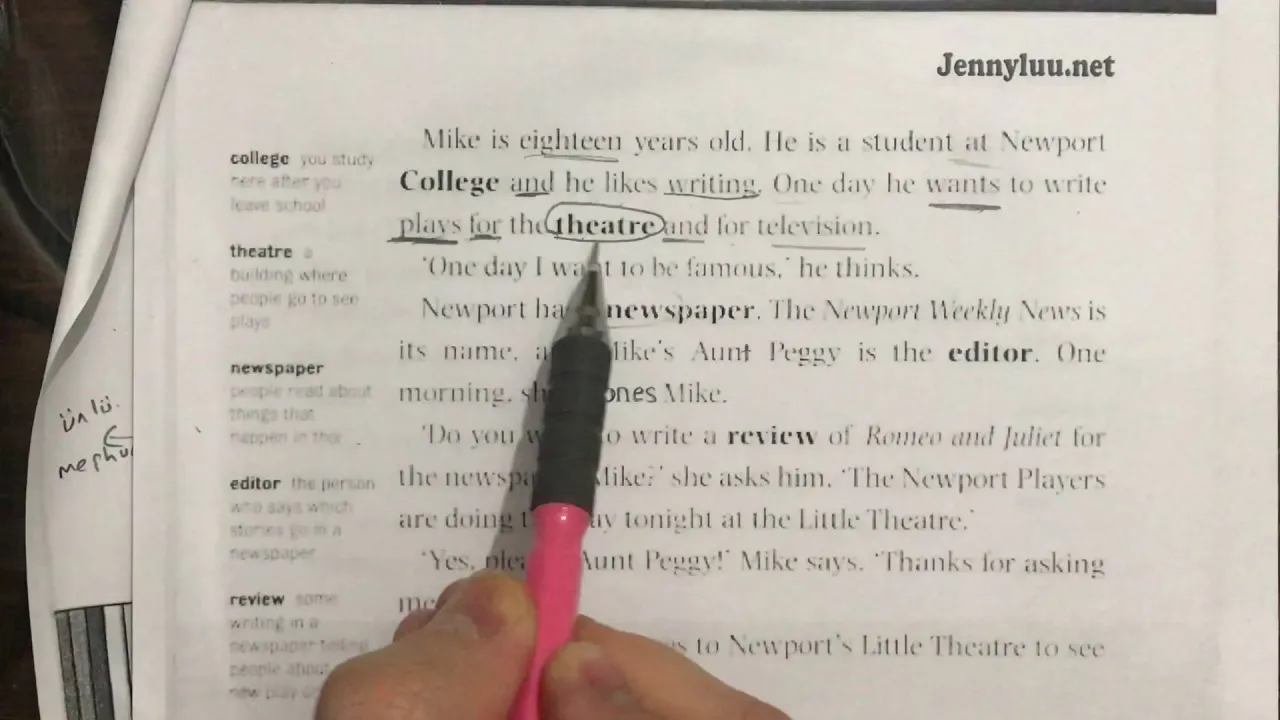 Jennyluu.net
Mike is eighteen years old. He is a student at Newport
College and he likes writing. One day he wants to write
plays for the theatre and for television.
'One day I want to be famous,' he thinks.
Newport ha newspaper. The Newport Weekly News is
its name, a Mike's Aunt Peggy is the editor. One
morning, sh ones Mike.
'Do you w o write a review of Romeo and Juliet for
the newspa Mike?' she asks him. 'The Newport Players
are doing t ay tonight at the Little Theatre.'
'Yes, plea Aunt Peggy!' Mike says. 'Thanks for asking
me
s to Newport's Little Theatre to see
college you study
here after you
leave school
theatre a
building where
people go to see
plays
newspaper
people read about
things that
happen in this
editor the person
who says which
stories go in a
newspaper
review some
writing in a
newspaper telling
people about
new play
ünlü.